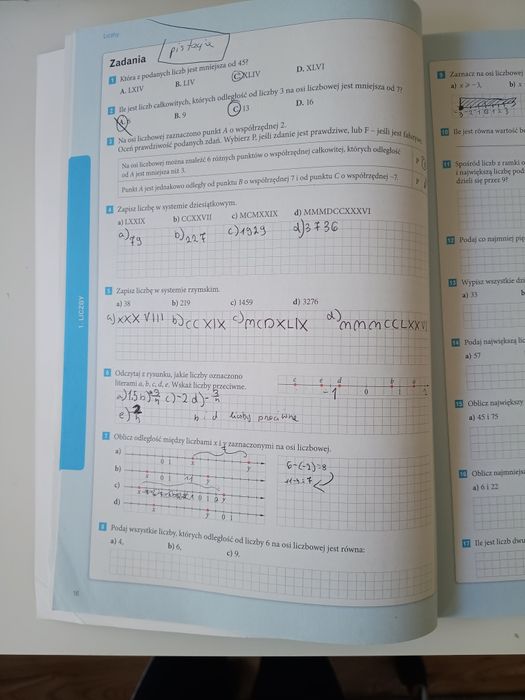 Liczby
Zadania
pistacje
1 Która z podanych liczb jest mniejsza od 45?
A. LXIV B. LIV C. XLIV D. XLVI
2 Ile jest liczb całkowitych, których odległość od liczby 3 na osi liczbowej jest mniejsza od 7?
B. 9 C. 13 D. 16
3 Na osi liczbowej zaznaczono punkt A o współrzędnej 2.
Oceń prawdziwość podanych zdań. Wybierz P, jeśli zdanie jest prawdziwe, lub F – jeśli jest fałszywe.
Na osi liczbowej można znaleźć 6 różnych punktów o współrzędnej całkowitej, których odległość
od A jest mniejsza niż 3.
Punkt A jest jednakowo odległy od punktu B o współrzędnej 7 i od punktu C o współrzędnej –7.
4 Zapisz liczbę w systemie dziesiątkowym.
a) LXXIX b) CCXXVII c) MCMXXIX d) MMMDCCXXXVI
a) 79 b) 227 c) 1929 d) 3736
5 Zapisz liczbę w systemie rzymskim.
a) 38 b) 219 c) 1459 d) 3276
a) XXXVIII b) CCXIX c) MCDXLIX d) MMMCCLXXVI
6 Odczytaj z rysunku, jakie liczby oznaczono
literami a, b, c, d, e. Wskaż liczby przeciwne.
c e d -1 0 b 1 2
a) 1,5 c) -2
e) b i d liczby przeciwne
7 Oblicz odległość między liczbami x i y zaznaczonymi na osi liczbowej.
a) 0 1 x y
b) x 0 1 y
c) x 0 1 y
d) x y 0 1
6-(-2)=8
8 Podaj wszystkie liczby, których odległość od liczby 6 na osi liczbowej jest równa:
a) 4, b) 6, c) 9.
16
1. LICZBY
9 Zaznacz na osi liczbowej
a) x > –3, b) x
10 Ile jest równa wartość
11 Spośród liczb z ramki
i największą liczbę
dzieli się przez 9?
12 Podaj co najmniej
13 Wypisz wszystkie
a) 33
14 Podaj największą
a) 57
15 Oblicz największy
a) 45 i 75
16 Oblicz najmniejszą
a) 6 i 22
17 Ile jest liczb